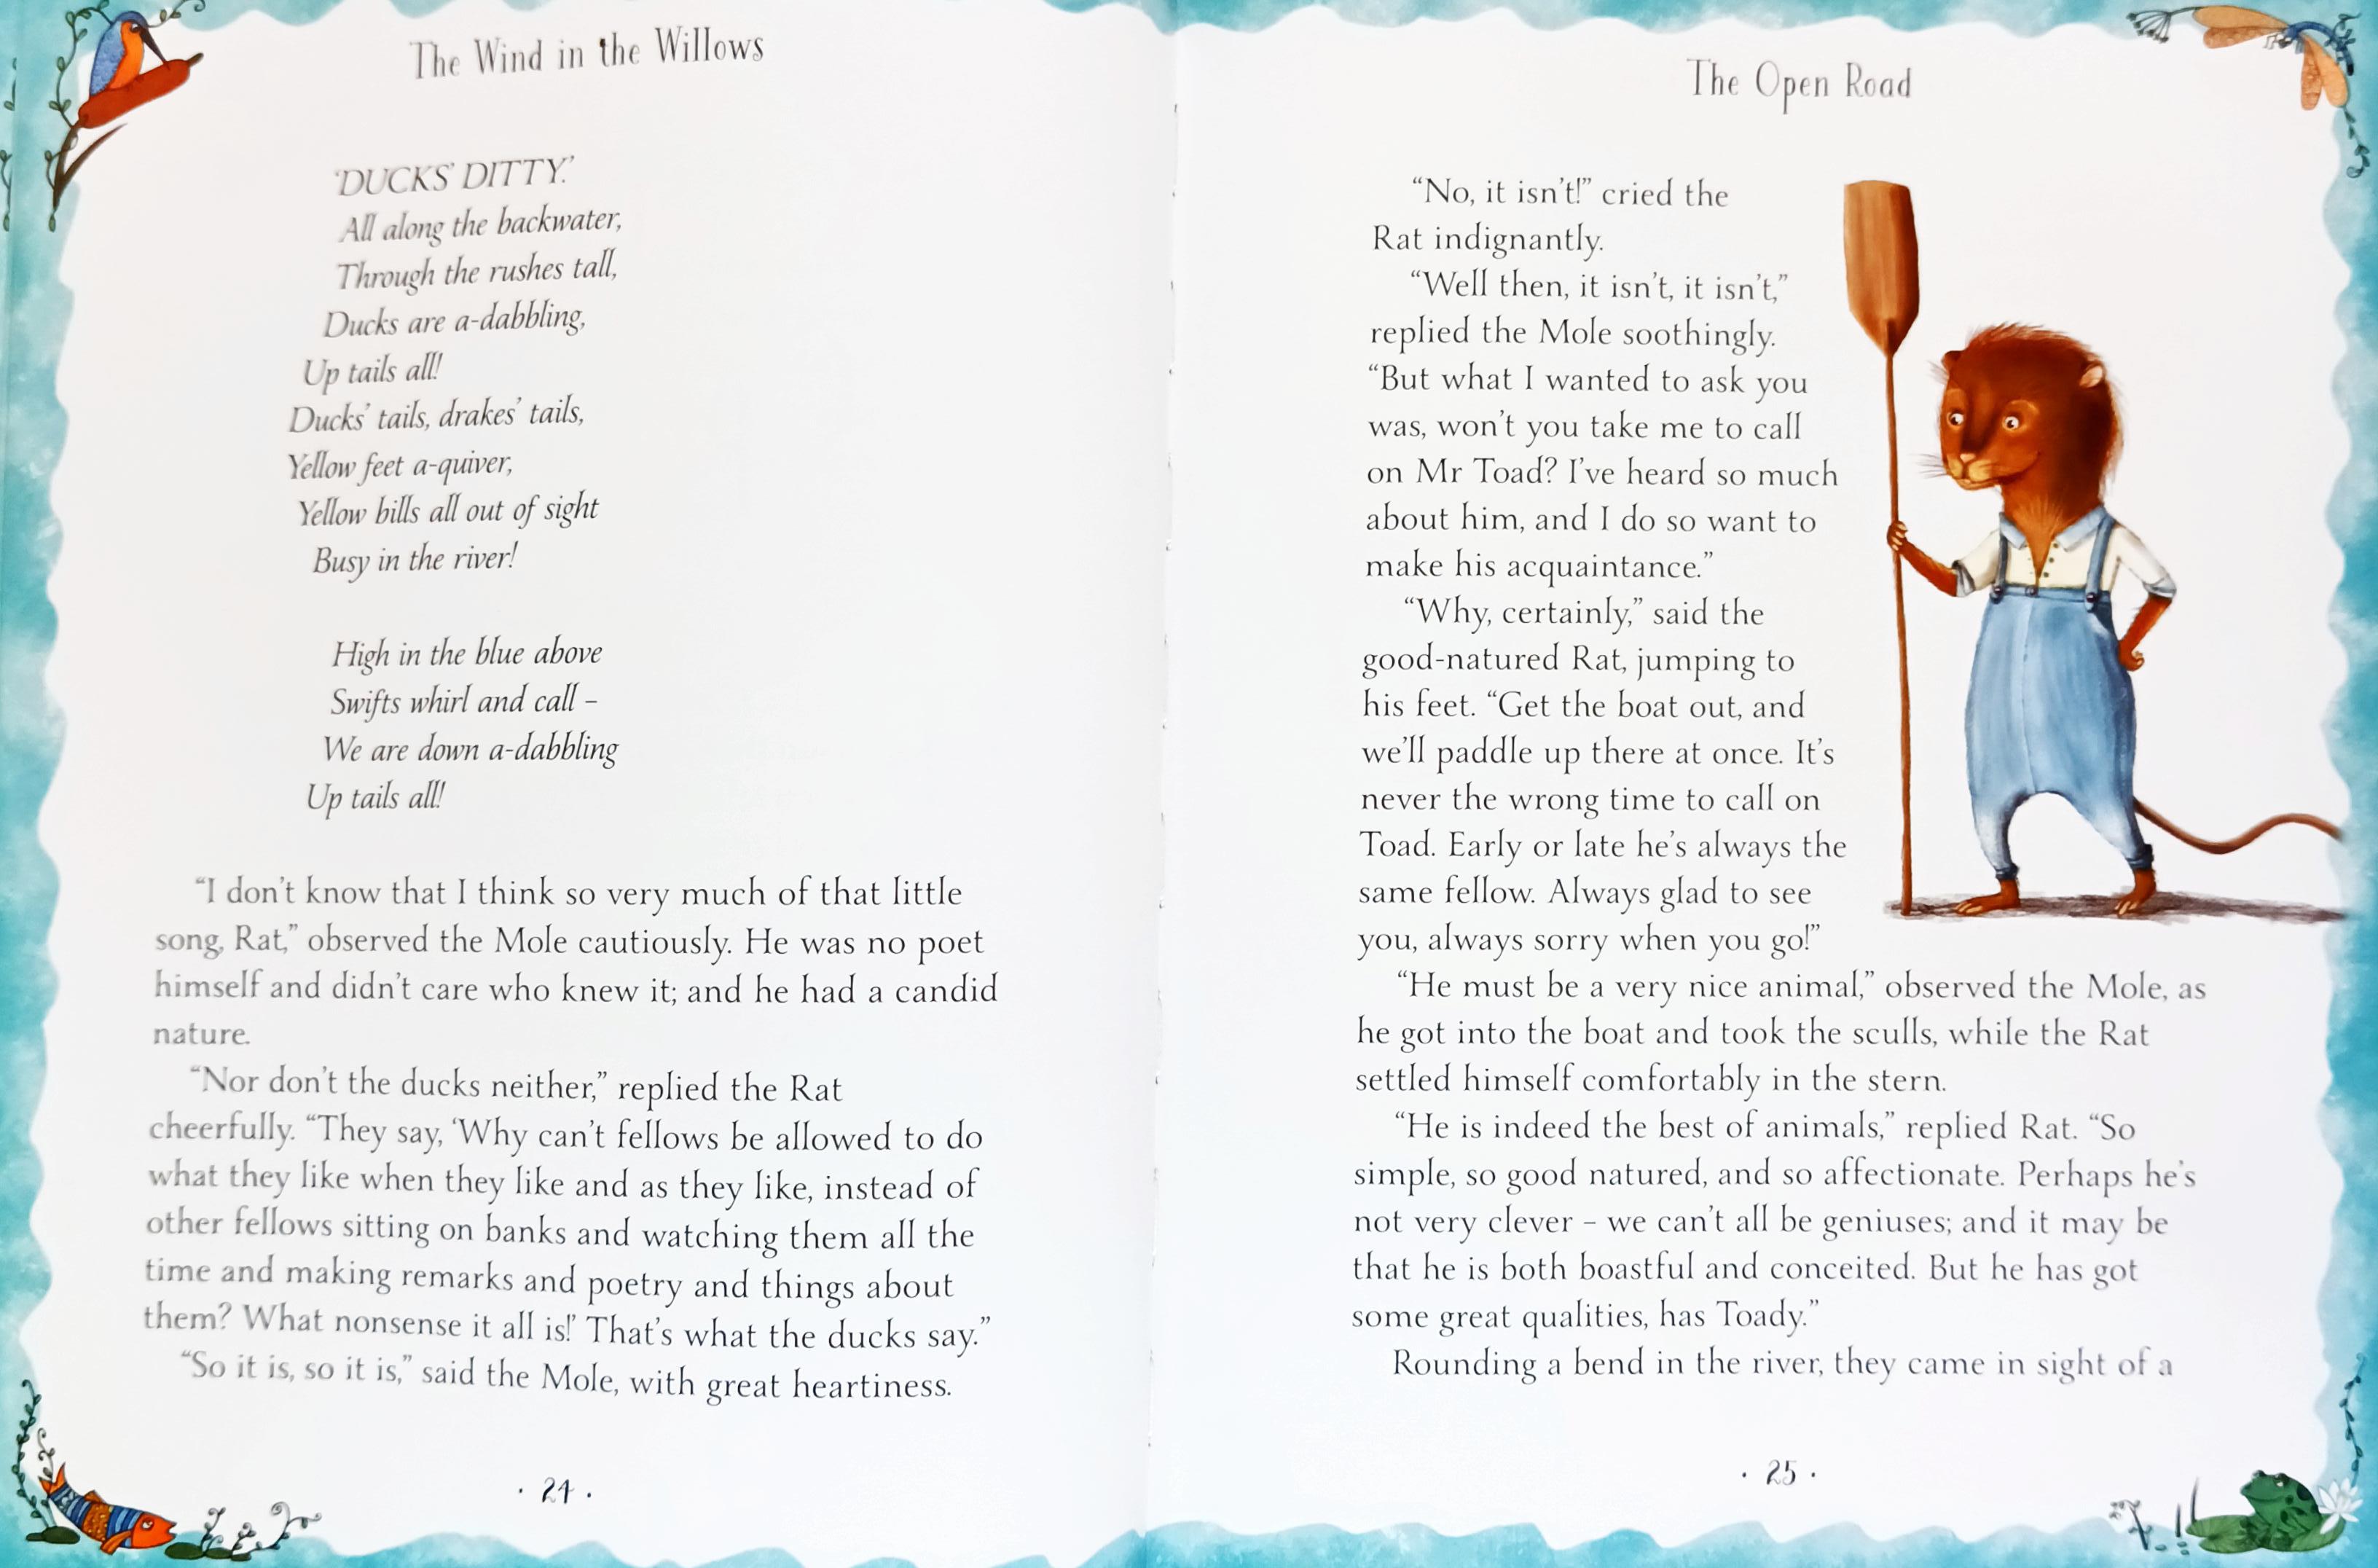 The Wind in the Willows
‘DUCKS’ DITTY.’
All along the backwater,
Through the rushes tall,
Ducks are a-dabbling,
Up tails all!
Ducks’ tails, drakes’ tails,
Yellow feet a-quiver,
Yellow bills all out of sight
Busy in the river!
High in the blue above
Swifts whirl and call –
We are down a-dabbling
Up tails all!
“I don’t know that I think so very much of that little
song, Rat,” observed the Mole cautiously. He was no poet
himself and didn’t care who knew it; and he had a candid
nature.
“Nor don’t the ducks neither,” replied the Rat
cheerfully. “They say, ‘Why can’t fellows be allowed to do
what they like when they like and as they like, instead of
other fellows sitting on banks and watching them all the
time and making remarks and poetry and things about
them? What nonsense it all is!’ That’s what the ducks say.”
“So it is, so it is,” said the Mole, with great heartiness.
· 24 ·
The Open Road
“No, it isn’t!” cried the
Rat indignantly.
“Well then, it isn’t, it isn’t,”
replied the Mole soothingly.
“But what I wanted to ask you
was, won’t you take me to call
on Mr Toad? I’ve heard so much
about him, and I do so want to
make his acquaintance.”
“Why, certainly,” said the
good-natured Rat, jumping to
his feet. “Get the boat out, and
we’ll paddle up there at once. It’s
never the wrong time to call on
Toad. Early or late he’s always the
same fellow. Always glad to see
you, always sorry when you go!”
“He must be a very nice animal,” observed the Mole, as
he got into the boat and took the sculls, while the Rat
settled himself comfortably in the stern.
“He is indeed the best of animals,” replied Rat. “So
simple, so good natured, and so affectionate. Perhaps he’s
not very clever – we can’t all be geniuses; and it may be
that he is both boastful and conceited. But he has got
some great qualities, has Toady.”
Rounding a bend in the river, they came in sight of a
· 25 ·